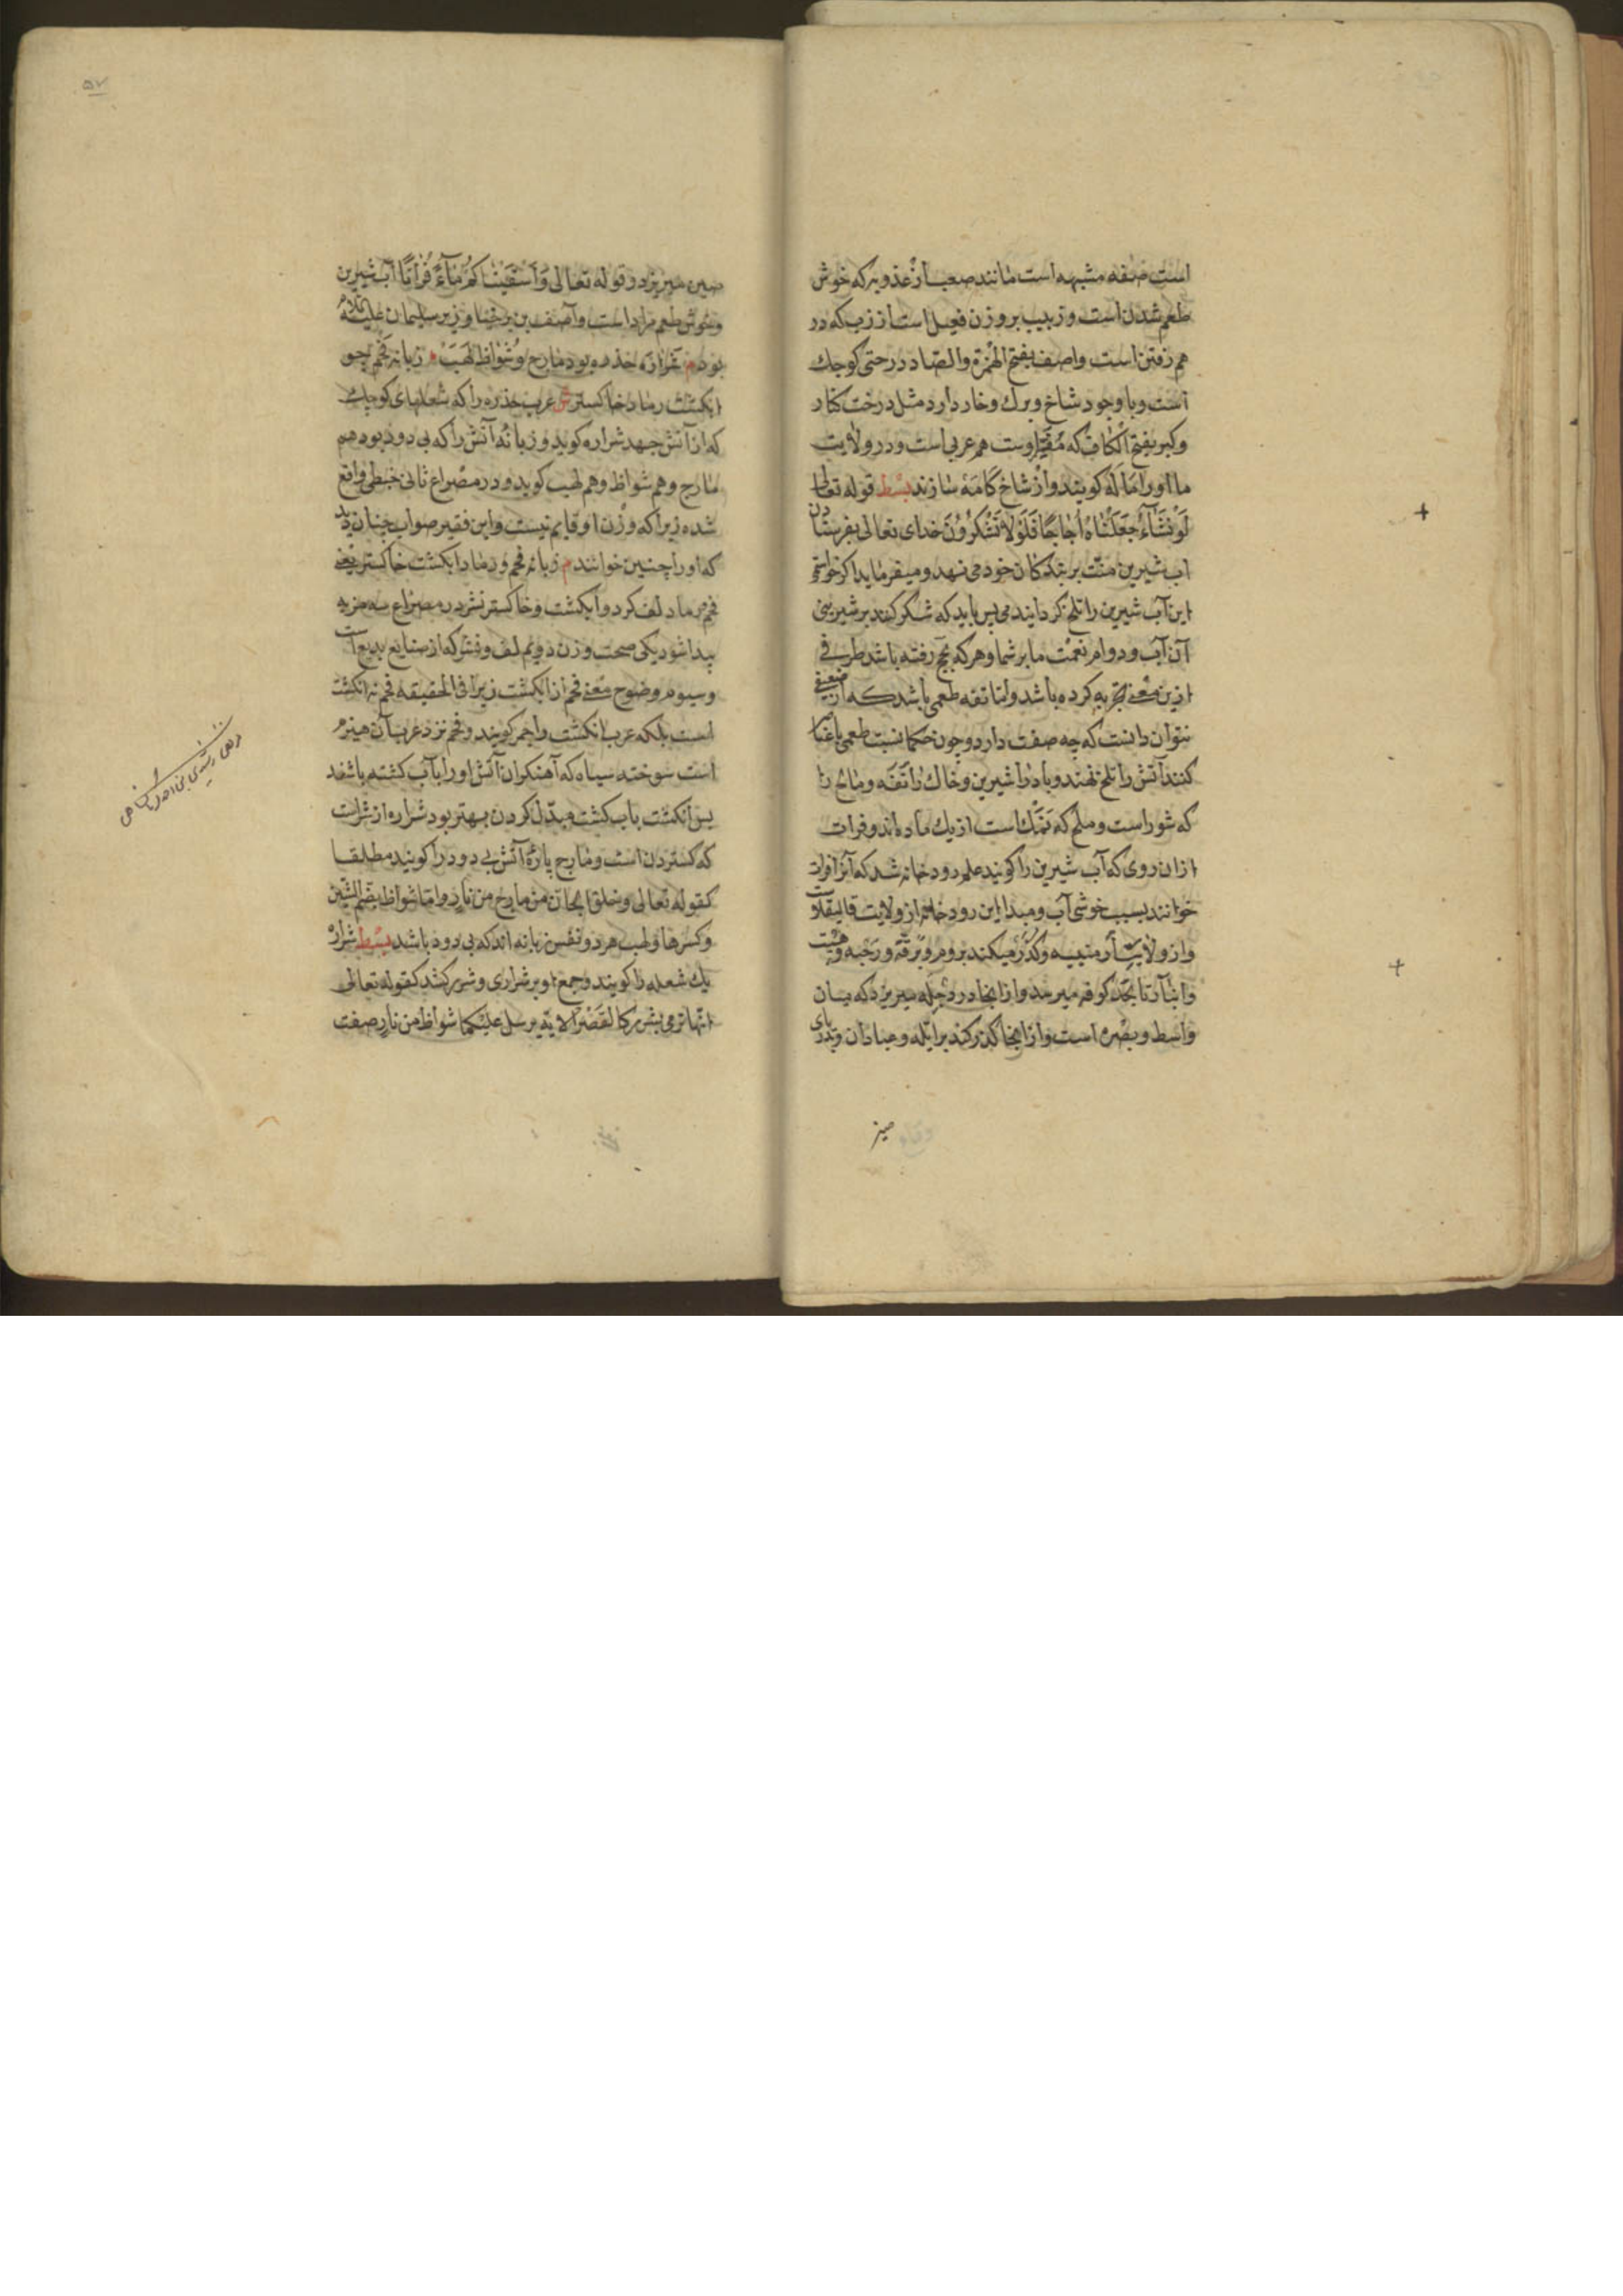 است صفه مشبهه است مانند صعب از عذوبه که خوش
طعم شدن است و زبیب بر وزن فعیل است از زب که در
هم رفتن است واصف بفتح الهمزة والصاد درختی کوچك
است و با وجود شاخ و برك و خار دارد مثل درخت کنار
وکبر بفتح الکاف که اوست هم عربی است و در ولایت
ما اورا کویند و از شاخ کامه سازند بسط قوله تعالی
لَوْ نَشَآءُ جَعَلْنَاهُ اُجَاجًا فَلَوْلَا تَشْکُرُوْنَ خدای تعالی بفرستادن
اب شیرین منت بر بندکان خود می نهد و میفرماید اکر خواستمی
این آب شیرین را تلخ کردانیدمی پس باید که شکر کنند بر شیرینی
آن آب و دوام نعمت ما بر شما و هر که بحج رفته باشد طرفی
ازین معنی تجربه کرده باشد واما تفه طعمی باشد که از
نتوان دانست که چه صفت دارد و چون حکما نسبت طعمی
کنند آتش را تلخ نهند و باد را شیرین و خاك را تَفَه و مالح را
که شور است و ملح که نمك است از یك ماده اند و فرات
ازان روی که آب شیرین را کویند علم رود خانه شد که آنرا فرات
خوانند بسبب خوشی آب و مبدا این رود خانه از ولایت قالیقلاست
و از ولایت ارمنییه و کذر میکند بروم و برقّه و رحبه و هیت
وانبار تا بحد کوفه میرسد و از انجا در دجله میریزد که میان
واسط و بصره است و از انجا کذر کند بر ابله و عبادان و بدریای
صین
۵۷
صین میریزد در قوله تعالی وَاَسْقَیْنَاکُمْ مَآءً فُرَاتًا آب شیرین
و خوش طعم مراد است و آصف بن برخیا وزیر سلیمان علیه السلام
بود م شراره جذوه بود مارج و شُوَاظ لَهَب م زبانه فحم چو
انکشت رماد خاکستر ش عرب جذوه را که شعلهای کوچك
که از آتش جهد شراره کوید و زبانهٔ آتش را که بی دود بود هم
مارج و هم شواظ و هم لهیب کوید و در مصراع ثانی خبطی واقع
شده زیرا که وزن او قایم نیست و این فقیر صواب چنان دید
که اورا چنین خوانند م زبانه فحم و رماد انکشت خاکستر یعنی
فحم و رماد لف کرد و انکشت و خاکستر نشر در مصراع سه مزیه
پیدا شود یکی صحت وزن دویم لف و نشر که از صنایع بدیع است
وسیوم وضوح معنی فحم از انکشت زیرا فی الحقیقه فحم نه انکشت
است بلکه عرب انکشت را جمر کویند و فحم نزد عرب آن هیزم
است سوخته سیاه که آهنکران آتش اورا بآب کشته باشند
پس انکشت بآب کشت مبدّل کردن بهتر بود شراره از شراست
که کستردن است و مارج پارهٔ آتش بی دود را کویند مطلقا
کقوله تعالی وخلق الجان من مارج من نار واما شواظ بضم الشین
وکسرها ولهب هر دو نفس زبانه اند که بی دود باشد بسط شراره
یك شعله را کویند و جمع او بر شراری و شرر کنند کقوله تعالی
انها ترمی بشرر کالقصر الایة یرسل علیکما شواظ من نار صفت